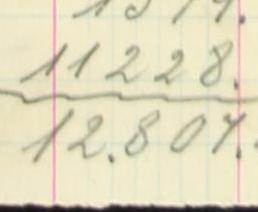 11228.
12.807.